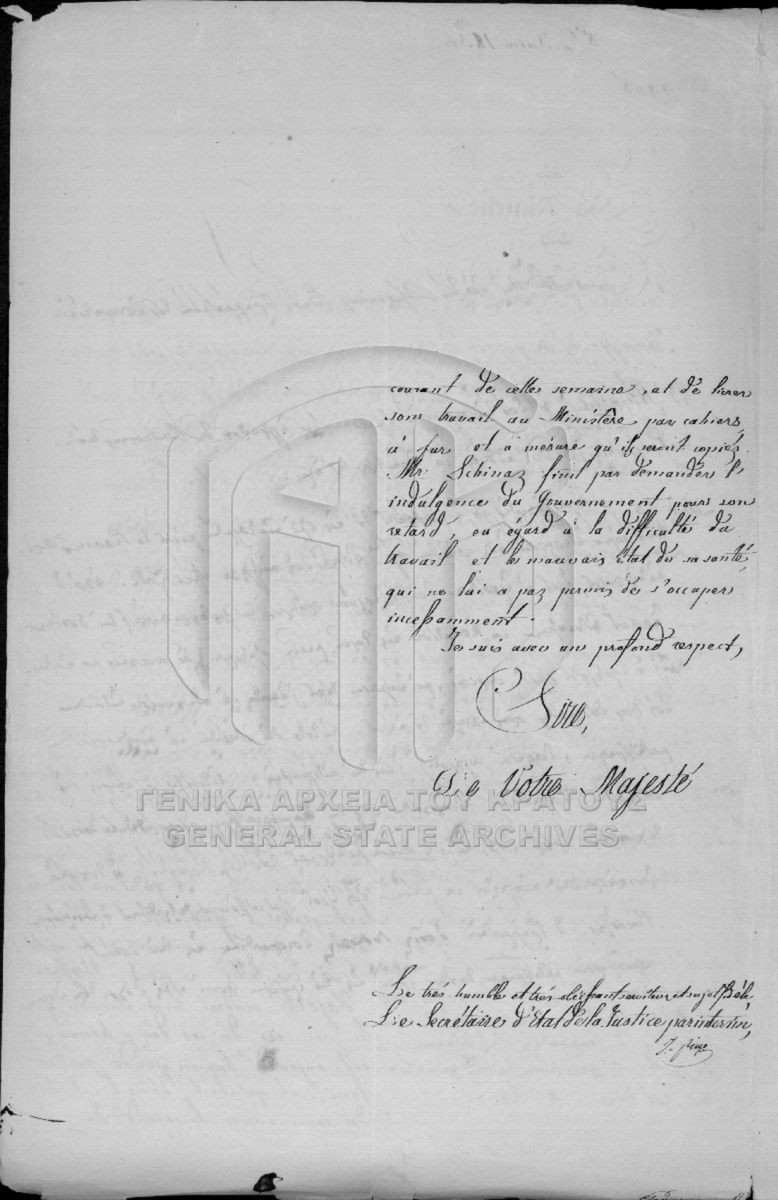 courant de cette semaine, et de livrer
son travail au Ministère par cahiers,
à fur et à mésure qu'ils seront copiés.
Mr. Schinaz finit par demander l'
indulgence du Gouvernement pour son
retard, eu égard à la difficulté du
travail et le mauvais état de sa santé,
qui ne lui a pas permis de s'occuper
incessamment.
Je suis avec un profond respect,
Sire,
De Votre Majesté
ΓΕΝΙΚΑ ΑΡΧΕΙΑ ΤΟΥ ΚΡΑΤΟΥΣ
GENERAL STATE ARCHIVES
Le très humble et très obéissant serviteur et sujet fidèle
Le Secrétaire d'Etat de la Justice par interim,